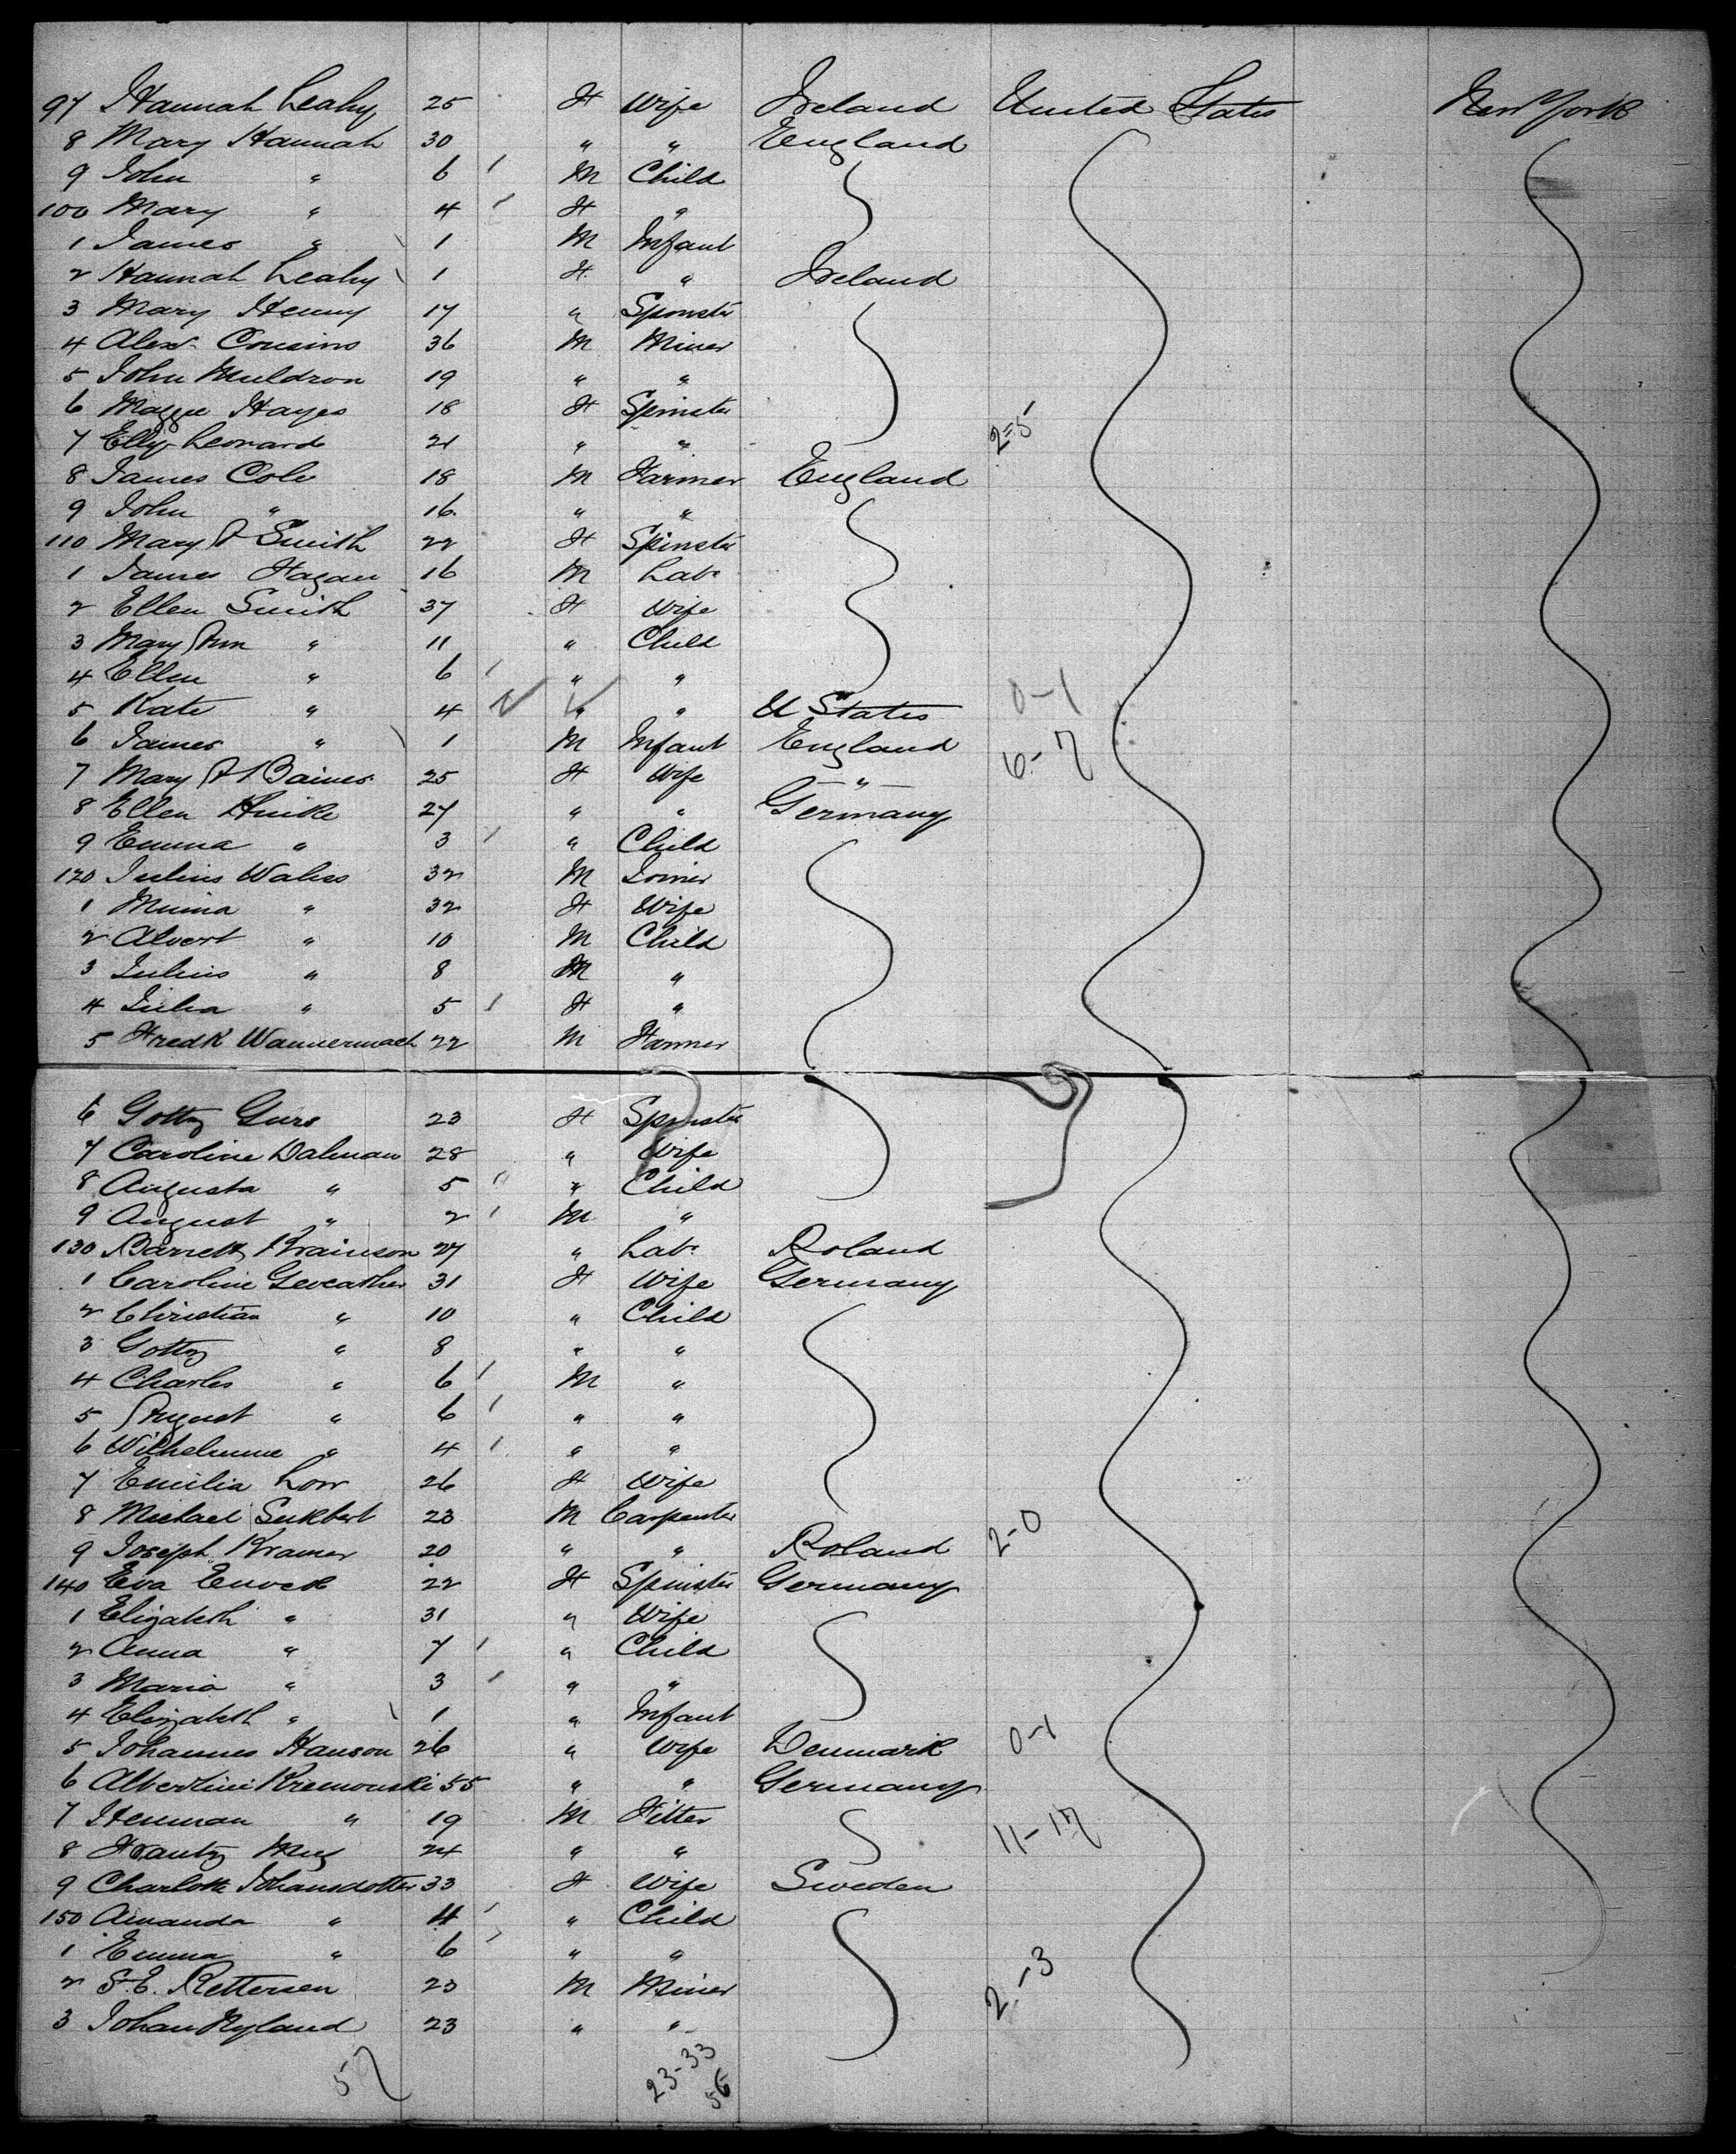 97 Hannah Leahy 25 F Wife Ireland United States New York
8 Mary Hannah 30 " " England
9 John " 6 M Child
100 Mary " 4 F "
1 James " 1 M Infant
2 Hannah Leahy 1 F " Ireland
3 Mary Henny 17 " Spinster
4 Alexr Cousins 36 M Miner
5 John Muldron 19 " "
6 Maggie Hayes 18 F Spinster
7 Elly Leonard 21 " " 2=5
8 James Cole 18 M Farmer England
9 John " 16 " "
110 Mary A Smith 22 F Spinster
1 James Fagan 16 M Labr
2 Ellen Smith 37 F Wife
3 Mary Ann " 11 " Child
4 Ellen " 6 " "
5 Kate " 4 " " U States 0-1
6 James " 1 M Infant England 6-7
7 Mary A Baines 25 F Wife "
8 Ellen 27 " " Germany
9 Emma " 3 " Child
120 Julius Waliss 32 M Joiner
1 Minna " 32 F Wife
2 Alvert " 10 M Child
3 Julius " 8 M "
4 Julia " 5 F "
5 Fredk Wannermach 22 M Farmer
6 Gotty Gurs 23 F Spinster
7 Caroline Dalman 28 " Wife
8 Augusta " 5 " Child
9 August " 2 M "
130 Barrett Krainson 27 " Labr Poland
1 Caroline Geveather 31 F Wife Germany
2 Christian " 10 " Child
3 Gotty " 8 " "
4 Charles " 6 M "
5 August " 6 " "
6 Wilhelmine " 4 " "
7 Emilia Low 26 F Wife
8 Michael 23 M Carpenter
9 Joseph Kramer 20 " " Poland 2-0
140 Eva 22 F Spinster Germany
1 Elizabeth " 31 " Wife
2 Anna " 7 " Child
3 Maria " 3 " "
4 Elizabeth " 1 " Infant
5 Johannes Hanson 26 " Wife Denmark 0-1
6 Albertini Kremonski 55 " " Germany
7 Herman " 19 M Fitter 11-17
8 Frantz 24 " "
9 Charlotte Johansdotter 33 F Wife Sweden
150 Amanda " 4 " Child
1 Emma " 6 " "
2 S.E. Pettersen 23 M Miner 2-3
3 Johan Nyland 23 " "
57 23-33
56